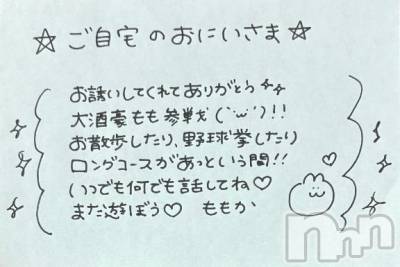 ☆ご自宅のおにいさま☆
お誘いしてくれてありがとう✧✧
大酒豪もも参戦(˙ω˙)!!
お散歩したり、野球拳したり
ロングコースがあっという間!!
いつでも何でも話してね♡
また遊ぼう♡ ももか
nnn